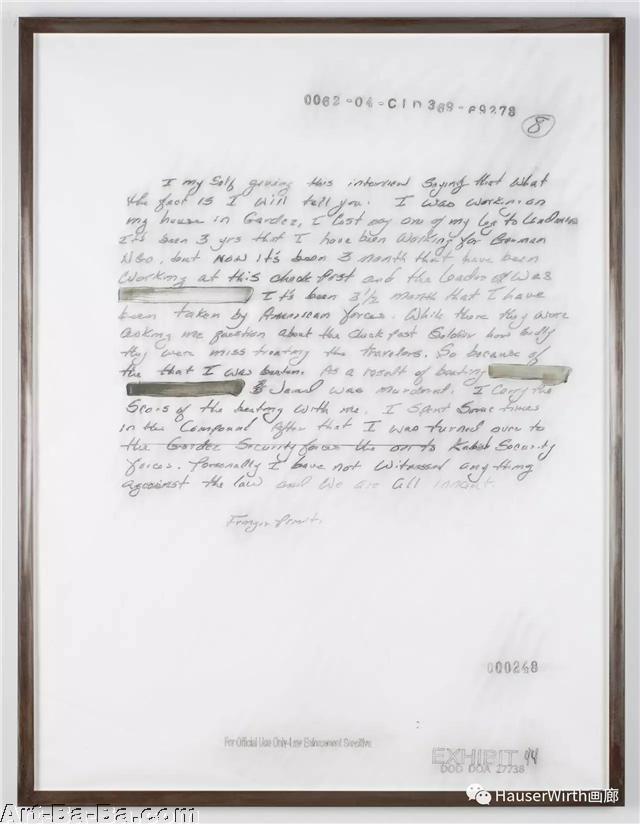 0062-04-CID369-69278
8
I my Self geving this interview Saying that What
the fact is I will tell you. I was workin on
my house in Gardez, I lost my one of my leg to
It's been 3 yrs that I have been working for German
NGO, but NOW it's been 3 month that have been
Working at this check post and the leader of was
It's been 3½ month that I have
been taken by American forces. While there they were
asking me question about the check post Soldier how badly
they were miss treating the travelors. So because of
the that I was beaten. As a result of beating
Jamal was murdered. I Carry the
Scars of the beating with me. I Spent Some times
in the Compound After that I was turned over to
the Gardez Security forces the on to Kabul Security
forces. Personally I have not Witnessed any thing
against the law and We are all
000248
For Official Use Only-Law Enforcement Sensitive
EXHIBIT 44
DOD DOA 27738
HauserWirth画廊
Art-Ba-Ba.com